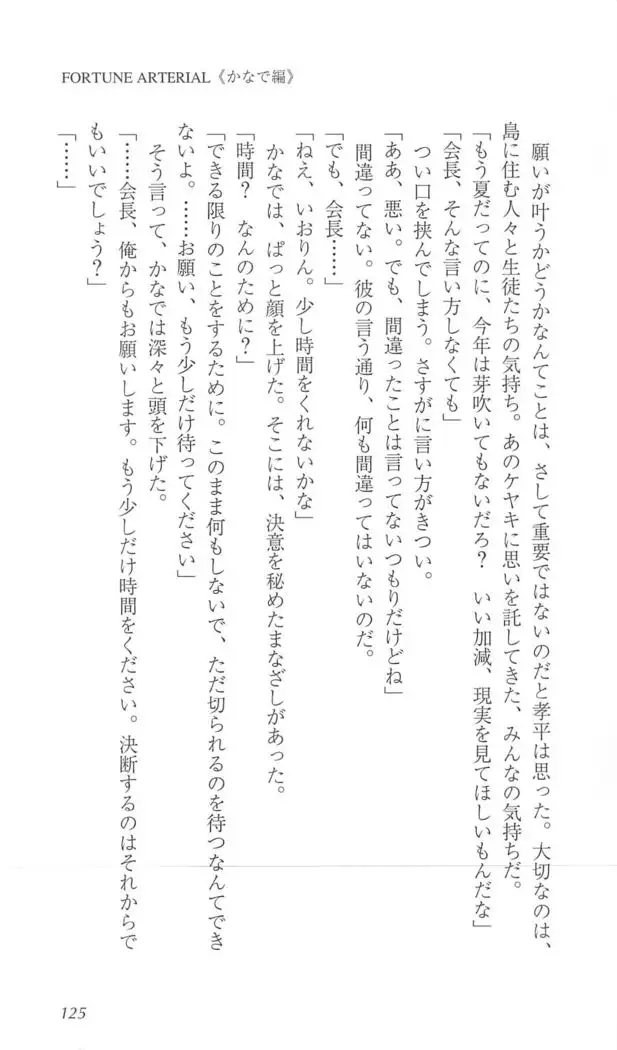 FORTUNE ARTERIAL《かなで編》
　願いが叶うかどうかなんてことは、さして重要ではないのだと孝平は思った。大切なのは、
島に住む人々と生徒たちの気持ち。あのケヤキに思いを託してきた、みんなの気持ちだ。
「もう夏だってのに、今年は芽吹いてもないだろ？　いい加減、現実を見てほしいもんだな」
「会長、そんな言い方しなくても」
　つい口を挟んでしまう。さすがに言い方がきつい。
「ああ、悪い。でも、間違ったことは言ってないつもりだけどね」
　間違ってない。彼の言う通り、何も間違ってはいないのだ。
「でも、会長……」
「ねえ、いおりん。少し時間をくれないかな」
　かなでは、ぱっと顔を上げた。そこには、決意を秘めたまなざしがあった。
「時間？　なんのために？」
「できる限りのことをするために。このまま何もしないで、ただ切られるのを待つなんてでき
ないよ。……お願い、もう少しだけ待ってください」
　そう言って、かなでは深々と頭を下げた。
「……会長、俺からもお願いします。もう少しだけ時間をください。決断するのはそれからで
もいいでしょう？」
「……」
125